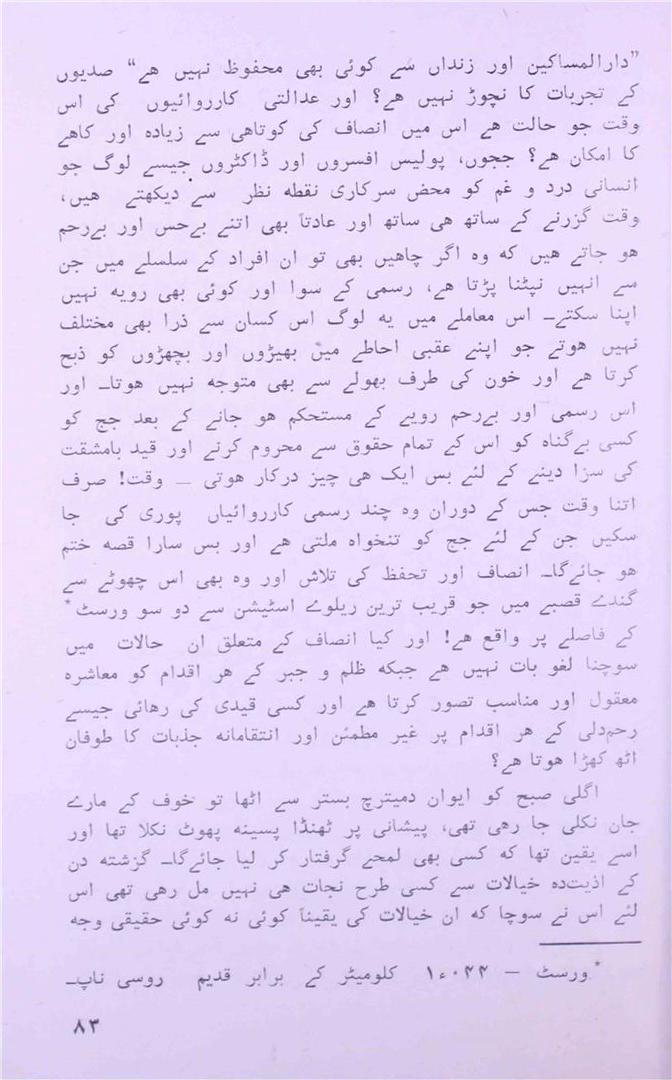 ”دارالمساکین اور زنداں سے کوئی بھی محفوظ نہیں ھے“ صدیوں
کے تجربات کا نچوڑ نہیں ھے؟ اور عدالتی کارروائیوں کی اس
وقت جو حالت ھے اس میں انصاف کی کوتاھی سے زیادہ اور کاھے
کا امکان ھے؟ ججوں، پولیس افسروں اور ڈاکٹروں جیسے لوگ جو
انسانی درد و غم کو محض سرکاری نقطہ نظر سے دیکھتے ھیں،
وقت گزرنے کے ساتھ ھی ساتھ اور عادتاً بھی اتنے بےحس اور بےرحم
ھو جاتے ھیں کہ وہ اگر چاھیں بھی تو ان افراد کے سلسلے میں جن
سے انہیں نپٹنا پڑتا ھے، رسمی کے سوا اور کوئی بھی رویہ نہیں
اپنا سکتے۔ اس معاملے میں یہ لوگ اس کسان سے ذرا بھی مختلف
نہیں ھوتے جو اپنے عقبی احاطے میں بھیڑوں اور بچھڑوں کو ذبح
کرتا ھے اور خون کی طرف بھولے سے بھی متوجہ نہیں ھوتا۔ اور
اس رسمی اور بےرحم رویے کے مستحکم ھو جانے کے بعد جج کو
کسی بےگناہ کو اس کے تمام حقوق سے محروم کرنے اور قید بامشقت
کی سزا دینے کے لئے بس ایک ھی چیز درکار ھوتی ۔ وقت! صرف
اتنا وقت جس کے دوران وہ چند رسمی کارروائیاں پوری کی جا
سکیں جن کے لئے جج کو تنخواہ ملتی ھے اور بس سارا قصہ ختم
ھو جائےگا۔ انصاف اور تحفظ کی تلاش اور وہ بھی اس چھوٹے سے
گندے قصبے میں جو قریب ترین ریلوے اسٹیشن سے دو سو ورسٹ*
کے فاصلے پر واقع ھے! اور کیا انصاف کے متعلق ان حالات میں
سوچنا لغو بات نہیں ھے جبکہ ظلم و جبر کے ھر اقدام کو معاشرہ
معقول اور مناسب تصور کرتا ھے اور کسی قیدی کی رھائی جیسے
رحم‌دلی کے ھر اقدام پر غیر مطمئن اور انتقامانہ جذبات کا طوفان
اٹھ کھڑا ھوتا ھے؟
اگلی صبح کو ایوان دمیترچ بستر سے اٹھا تو خوف کے مارے
جان نکلی جا رھی تھی، پیشانی پر ٹھنڈا پسینہ پھوٹ نکلا تھا اور
اسے یقین تھا کہ کسی بھی لمحے گرفتار کر لیا جائےگا۔ گزشتہ دن
کے اذیت‌دہ خیالات سے کسی طرح نجات ھی نہیں مل رھی تھی اس
لئے اس نے سوچا کہ ان خیالات کی یقیناً کوئی نہ کوئی حقیقی وجہ
*ورسٹ – ۱٫۰۶۶ کلومیٹر کے برابر قدیم روسی ناپ۔
۸۳